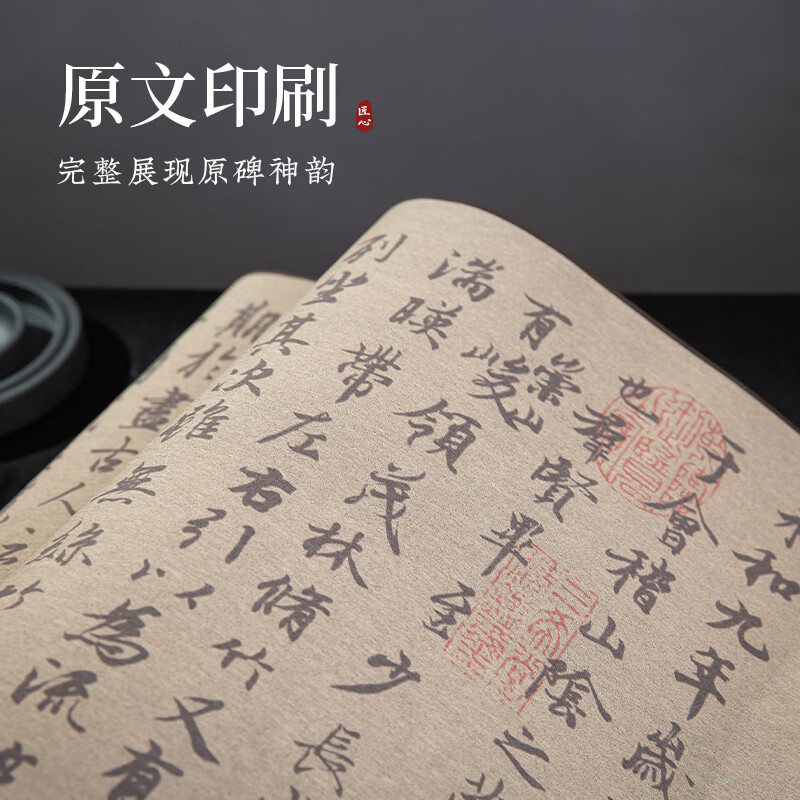 原文印刷
匠心
完整展现原碑神韵
永和九年歲
于會稽山陰之
也羣賢畢至少長
有崇山峻領茂林脩竹又有
湍暎帶左右引以為流
列坐其次雖無絲竹
期於盡古人云